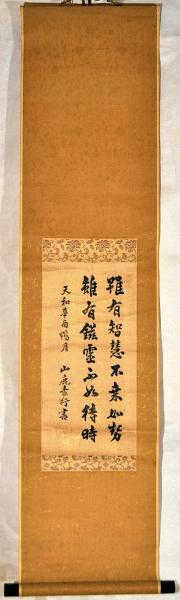 雖有智慧不来如勢
雖有鎡霊不如待時
天和辛酉月
山鹿素行書